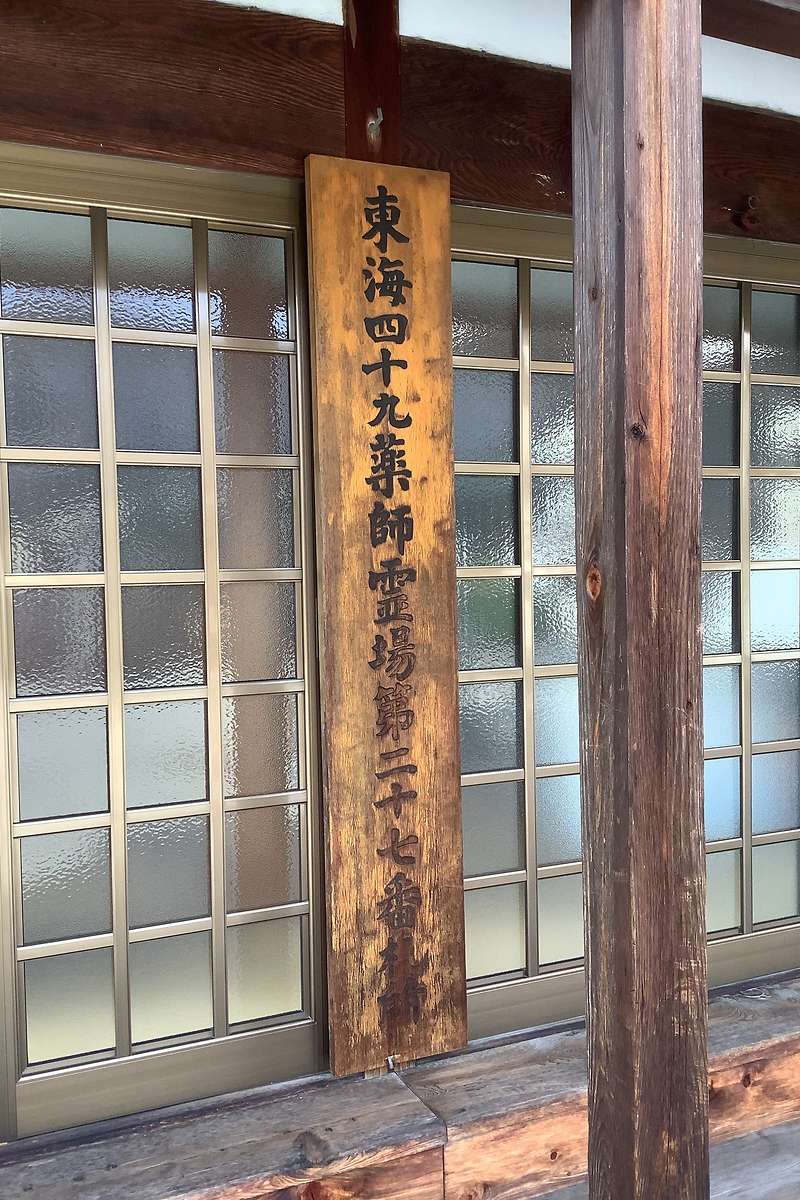 東海四十九薬師霊場第二十七番札所